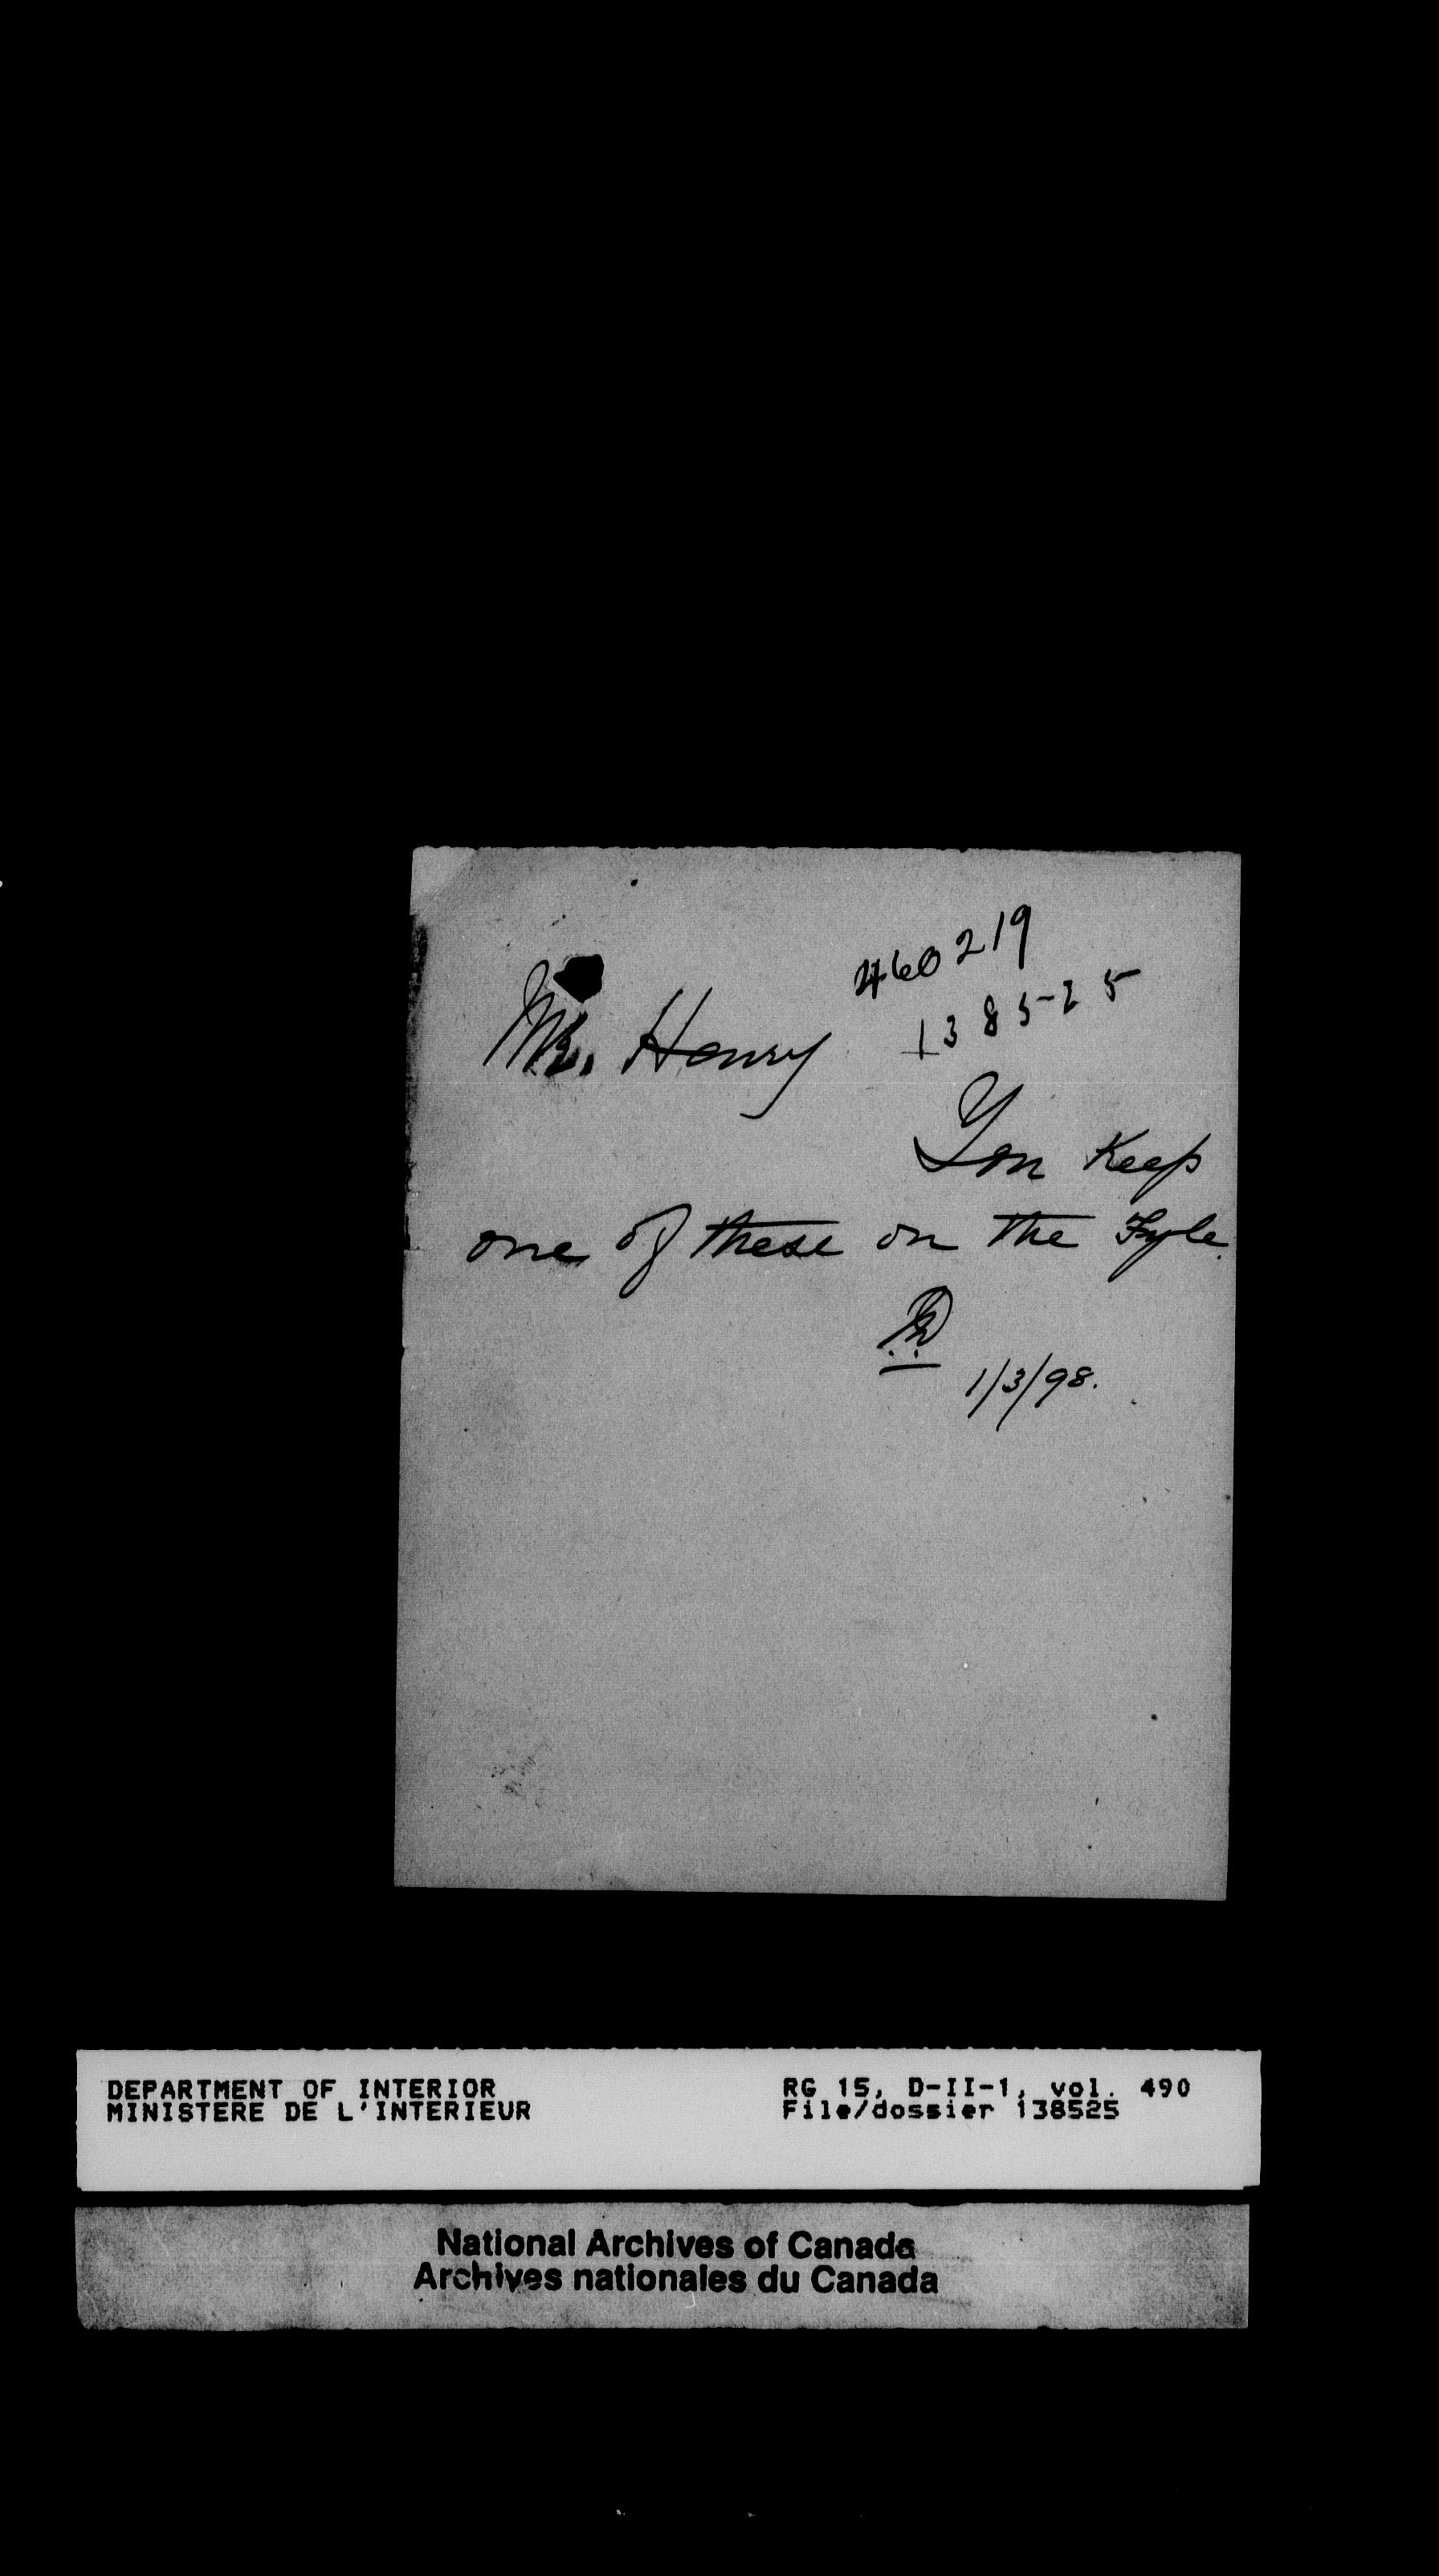 460219
138525
Mr. Henry
You keep
one of these on the Fyle.
1/3/98.
DEPARTMENT OF INTERIOR
MINISTERE DE L'INTERIEUR
RG 15, D-II-1, vol. 490
File/dossier 138525
National Archives of Canada
Archives nationales du Canada